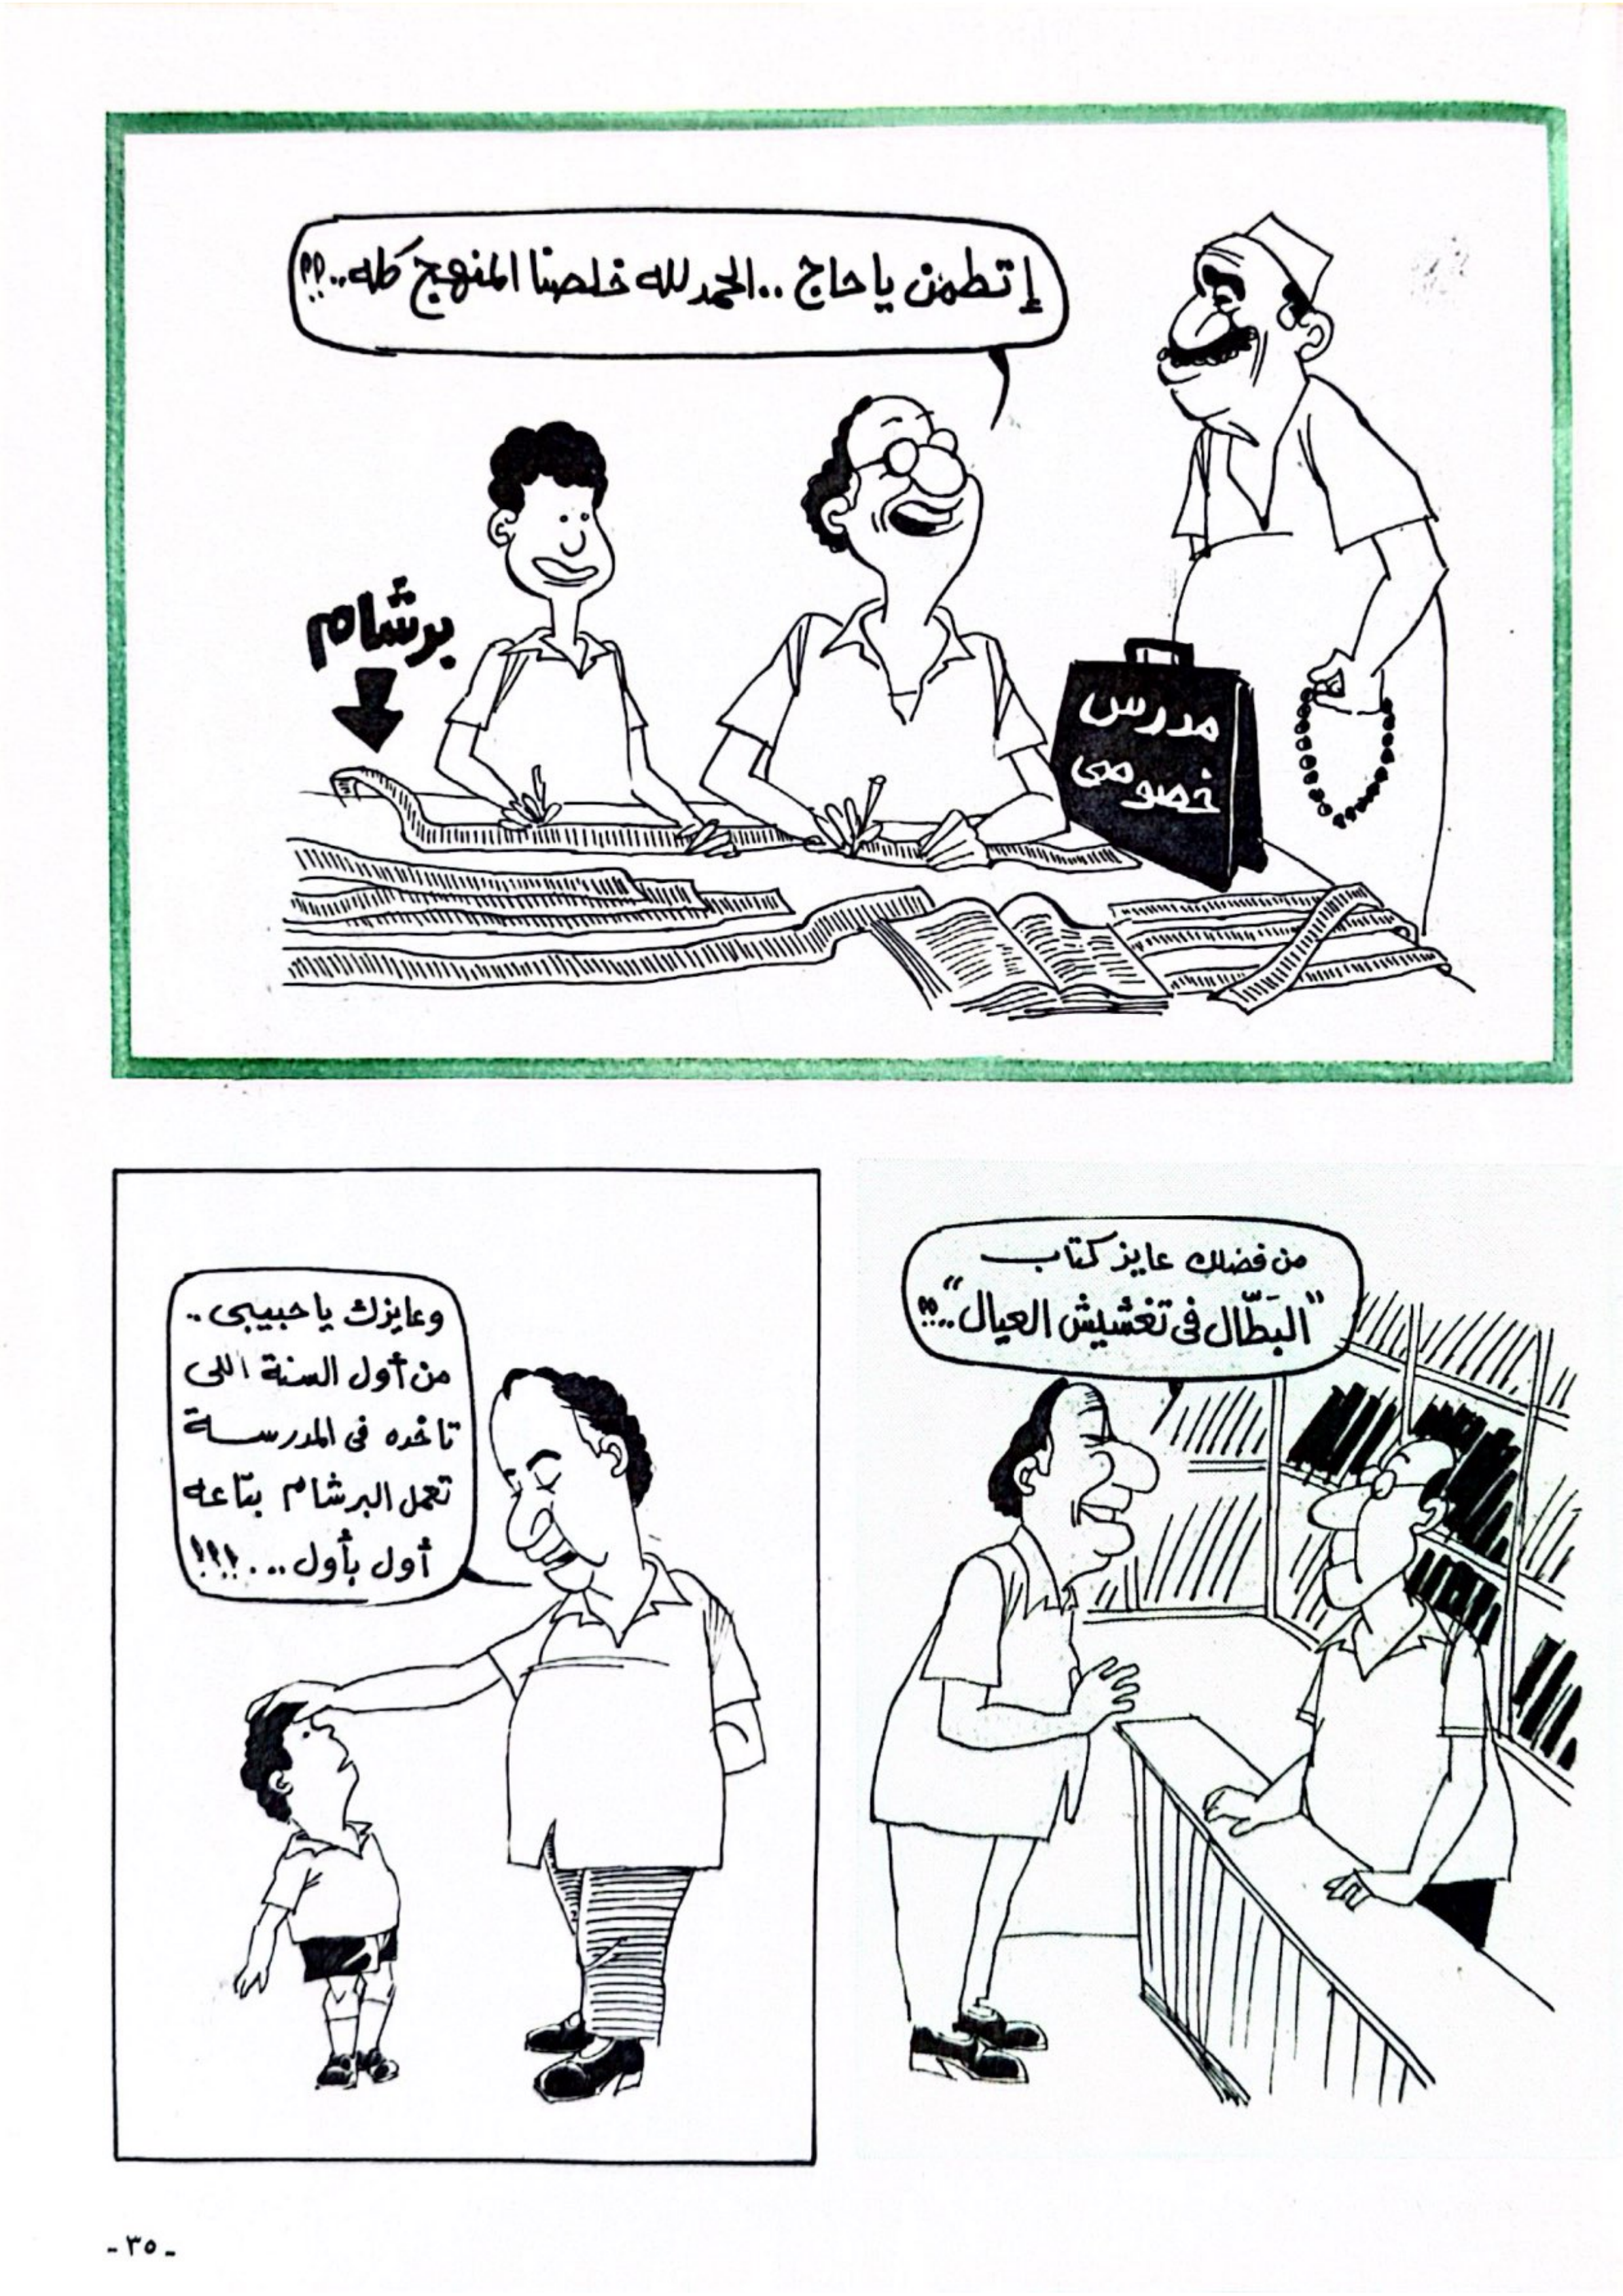 إتطمن يا حاج ..الحمد لله خلصنا المنهج كله..!!
برشام
مدرس
خصوصى
من فضلك عايز كتاب
"البَطّال فى تغشيش العيال"..!!
وعايزك يا حبيبى ..
من أول السنة اللى
تاخده فى المدرسة
تعمل البرشام بتاعه
أول بأول ...!!!
- ٣٥ -